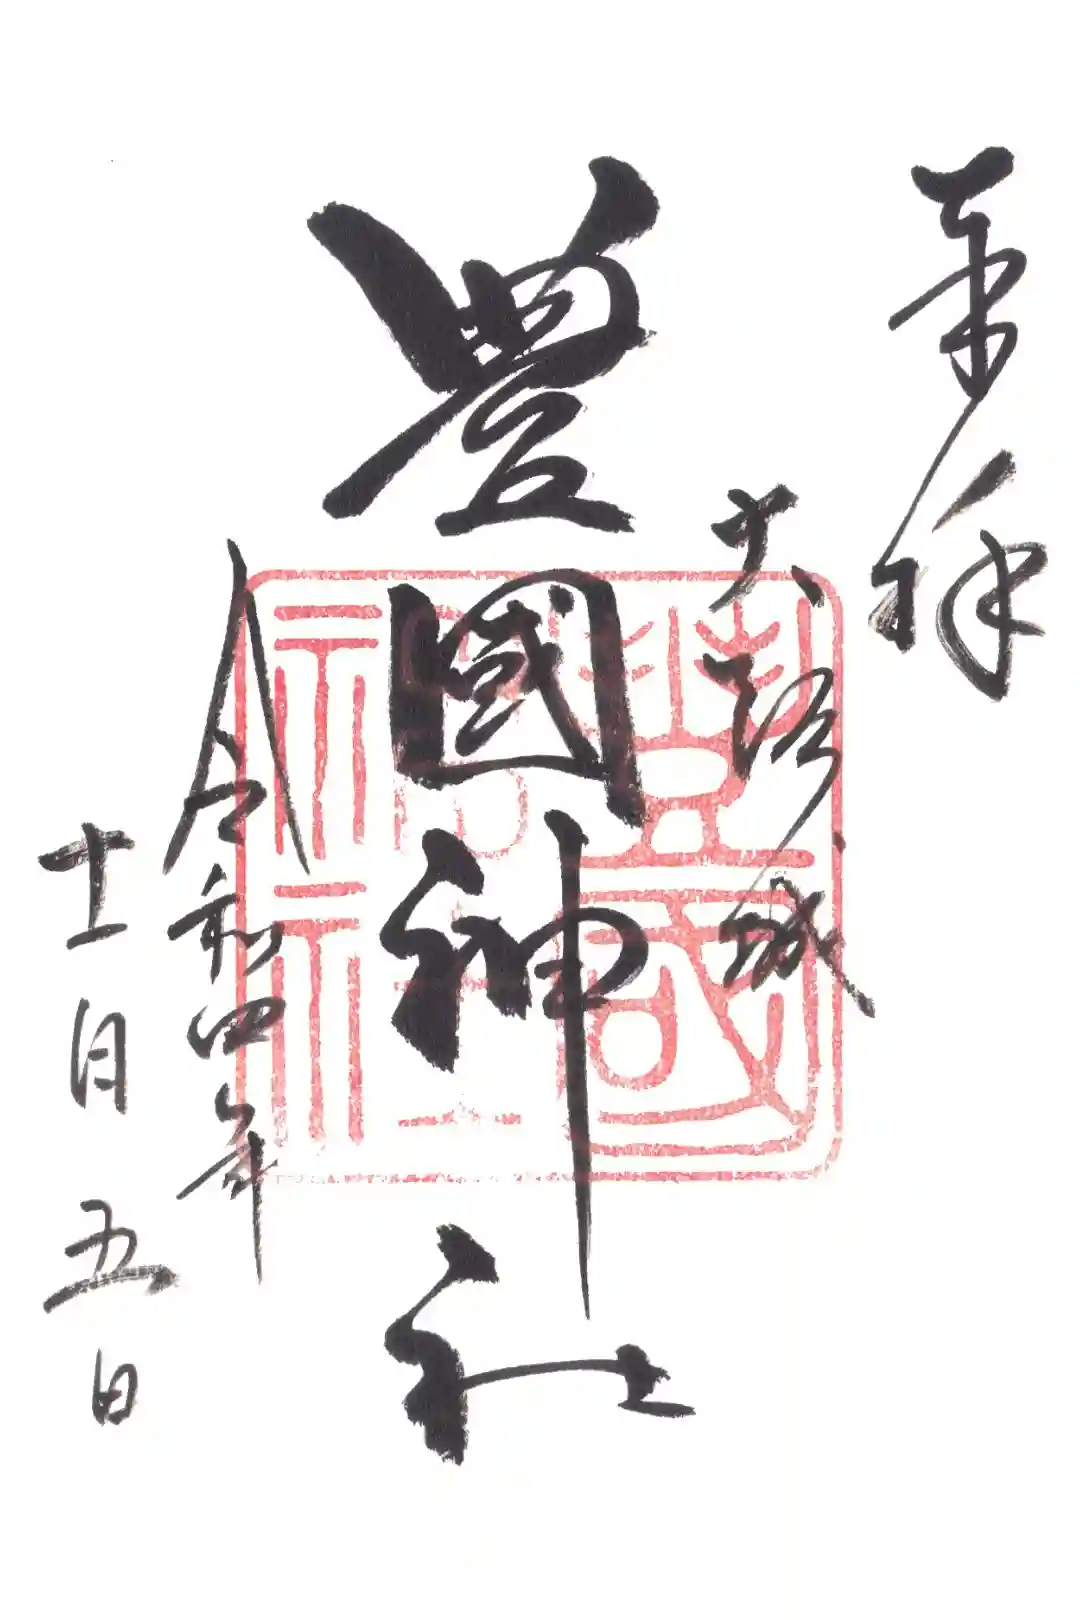 奉拝
大阪城
豊國神社
令和四年
十一月五日
豐國
神社